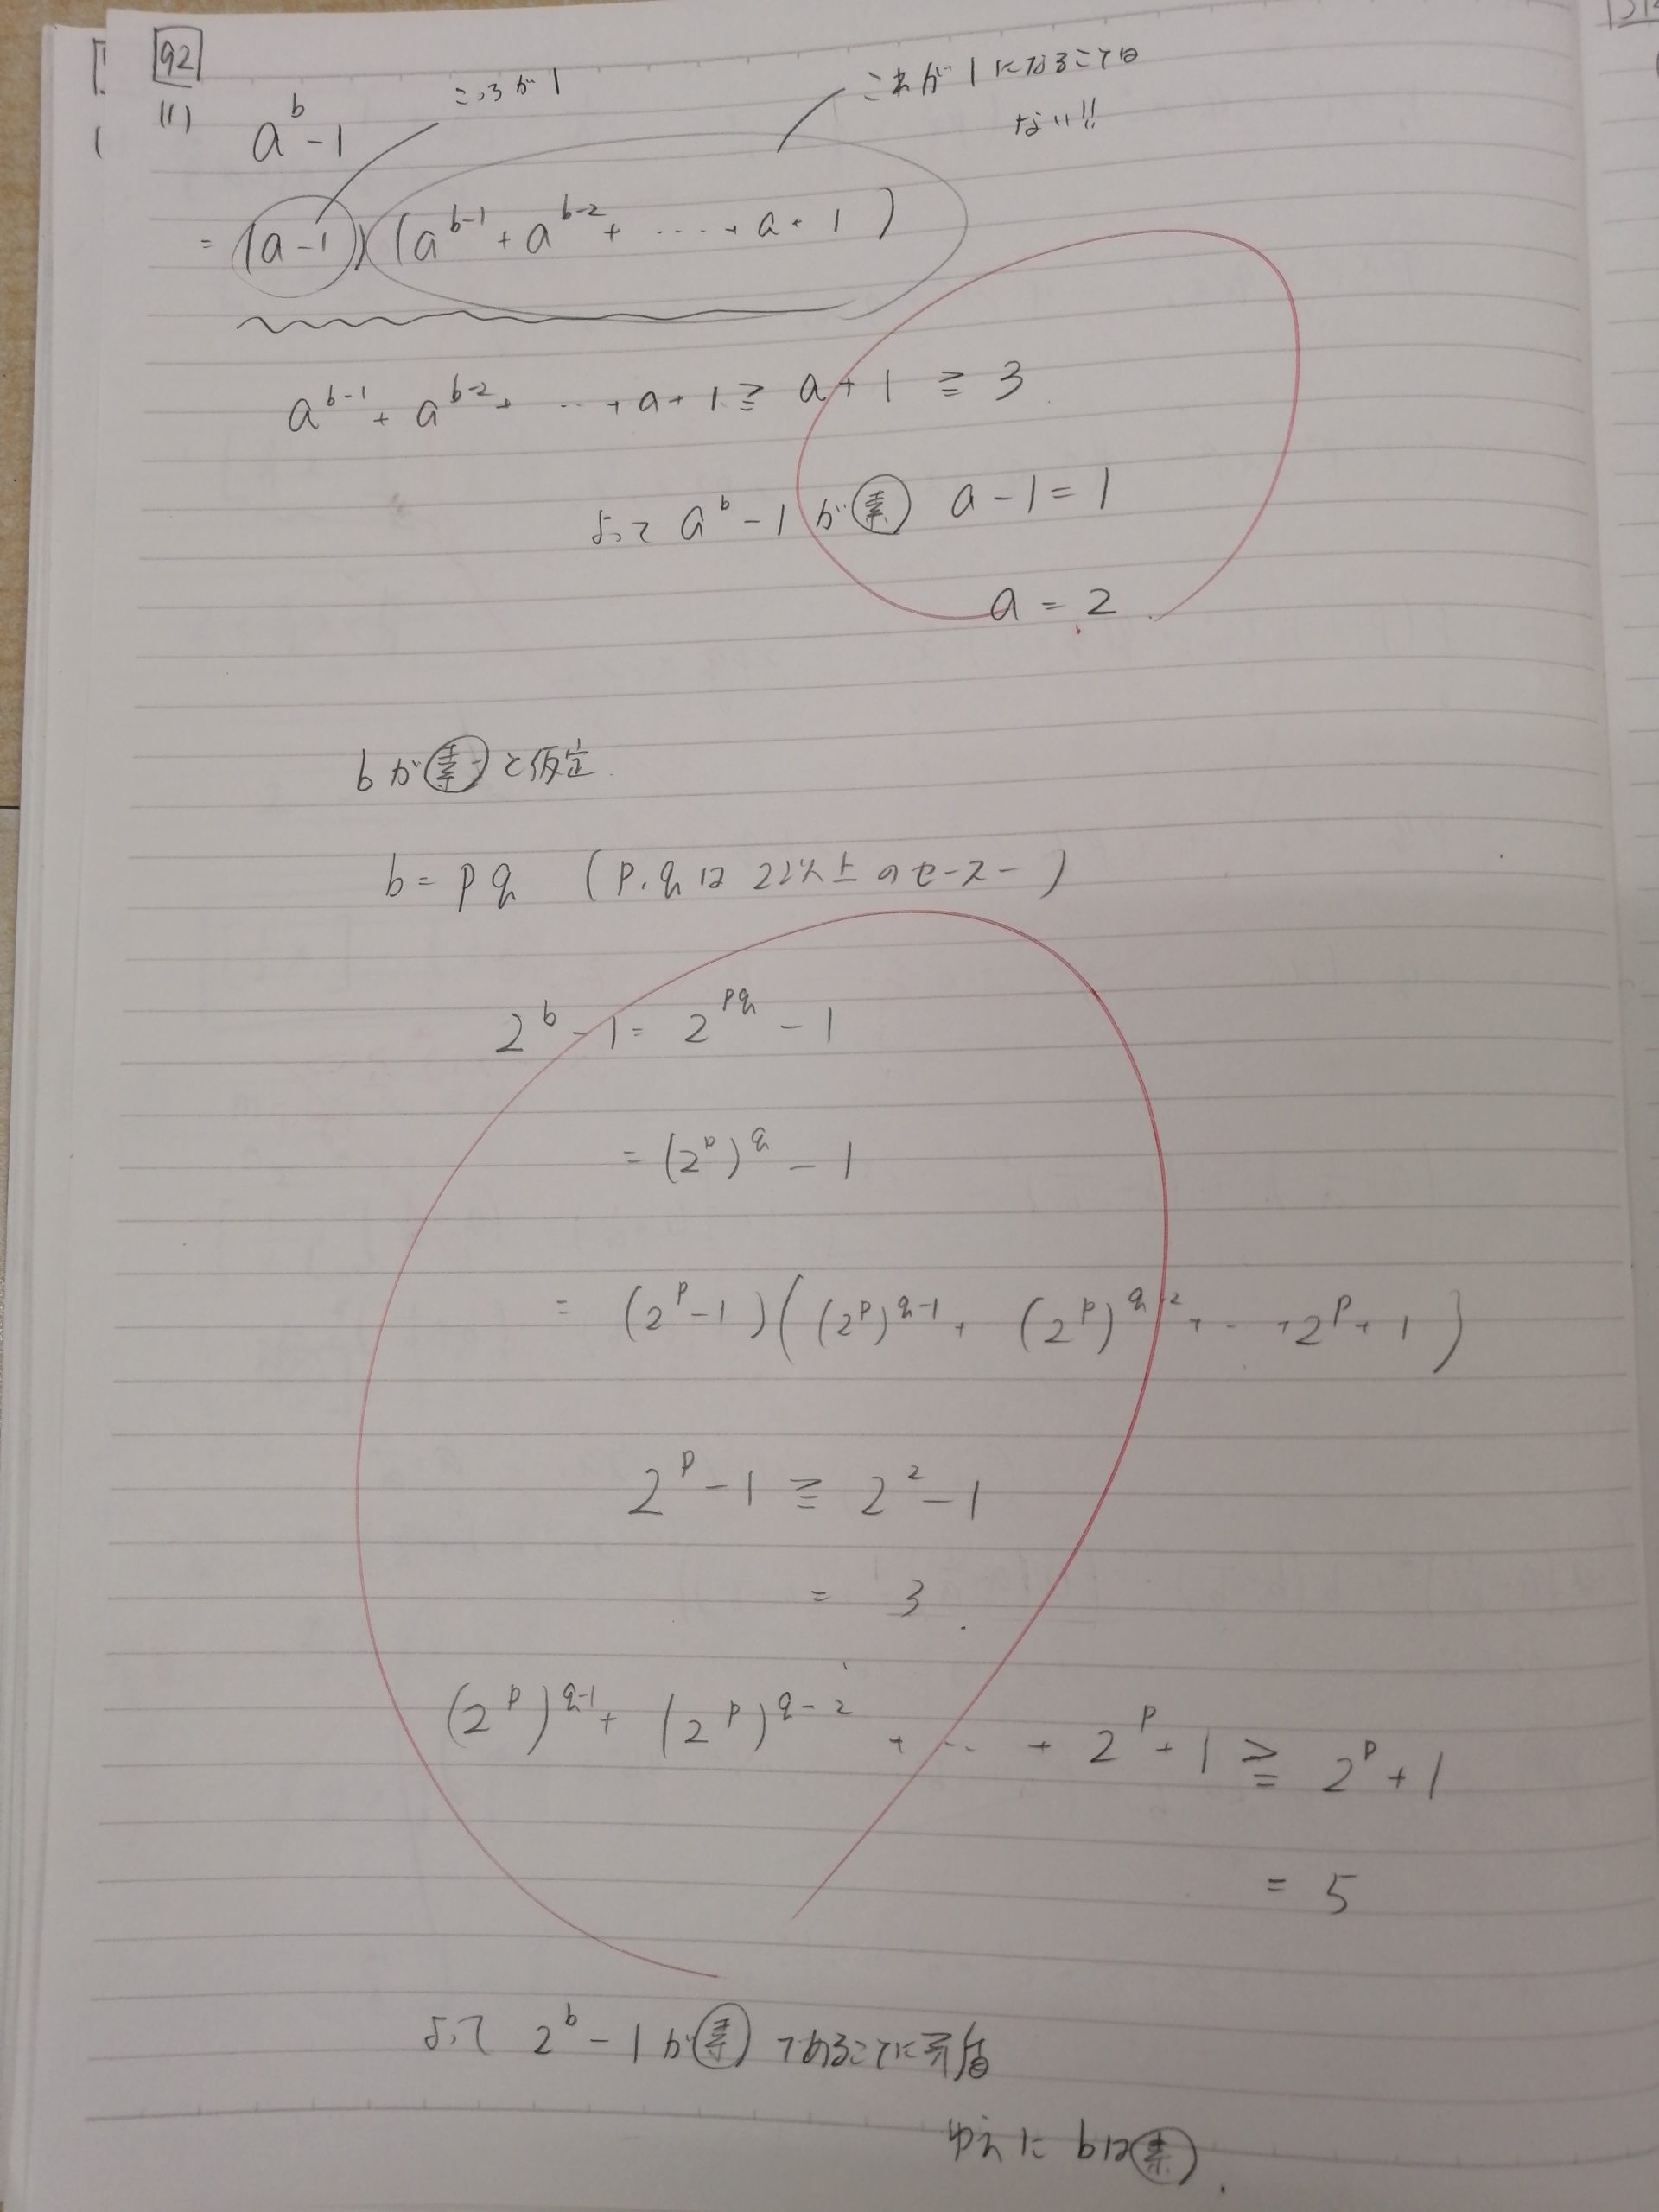 92
(1)
こっちが1
これが1になることは
ない!!
a^b - 1
= (a-1)(a^{b-1} + a^{b-2} + ‥‥ + a + 1)
a^{b-1} + a^{b-2} + ‥ + a + 1 ≧ a + 1 ≧ 3
よって a^b - 1 が素 a - 1 = 1
a = 2
bが素と仮定
b = pq (p, qは2以上のセースー)
2^b - 1 = 2^{pq} - 1
= (2^p)^q - 1
= (2^p - 1)((2^p)^{q-1} + (2^p)^{q-2} + ‥ + 2^p + 1)
2^p - 1 ≧ 2^2 - 1
= 3.
(2^p)^{q-1} + (2^p)^{q-2} + ‥ + 2^p + 1 ≧ 2^p + 1
= 5
よって 2^b - 1 が素であることに矛盾
ゆえに bは素.